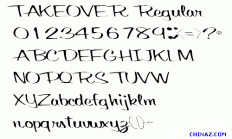 TAKEOVER Regular
0123456789%:/=/?°
ABCDEFGHIJKLM
NOPQRSTUVW
XYZabcdefghijklm
nopqrstuvwxyz()-
CHINAZ.COM